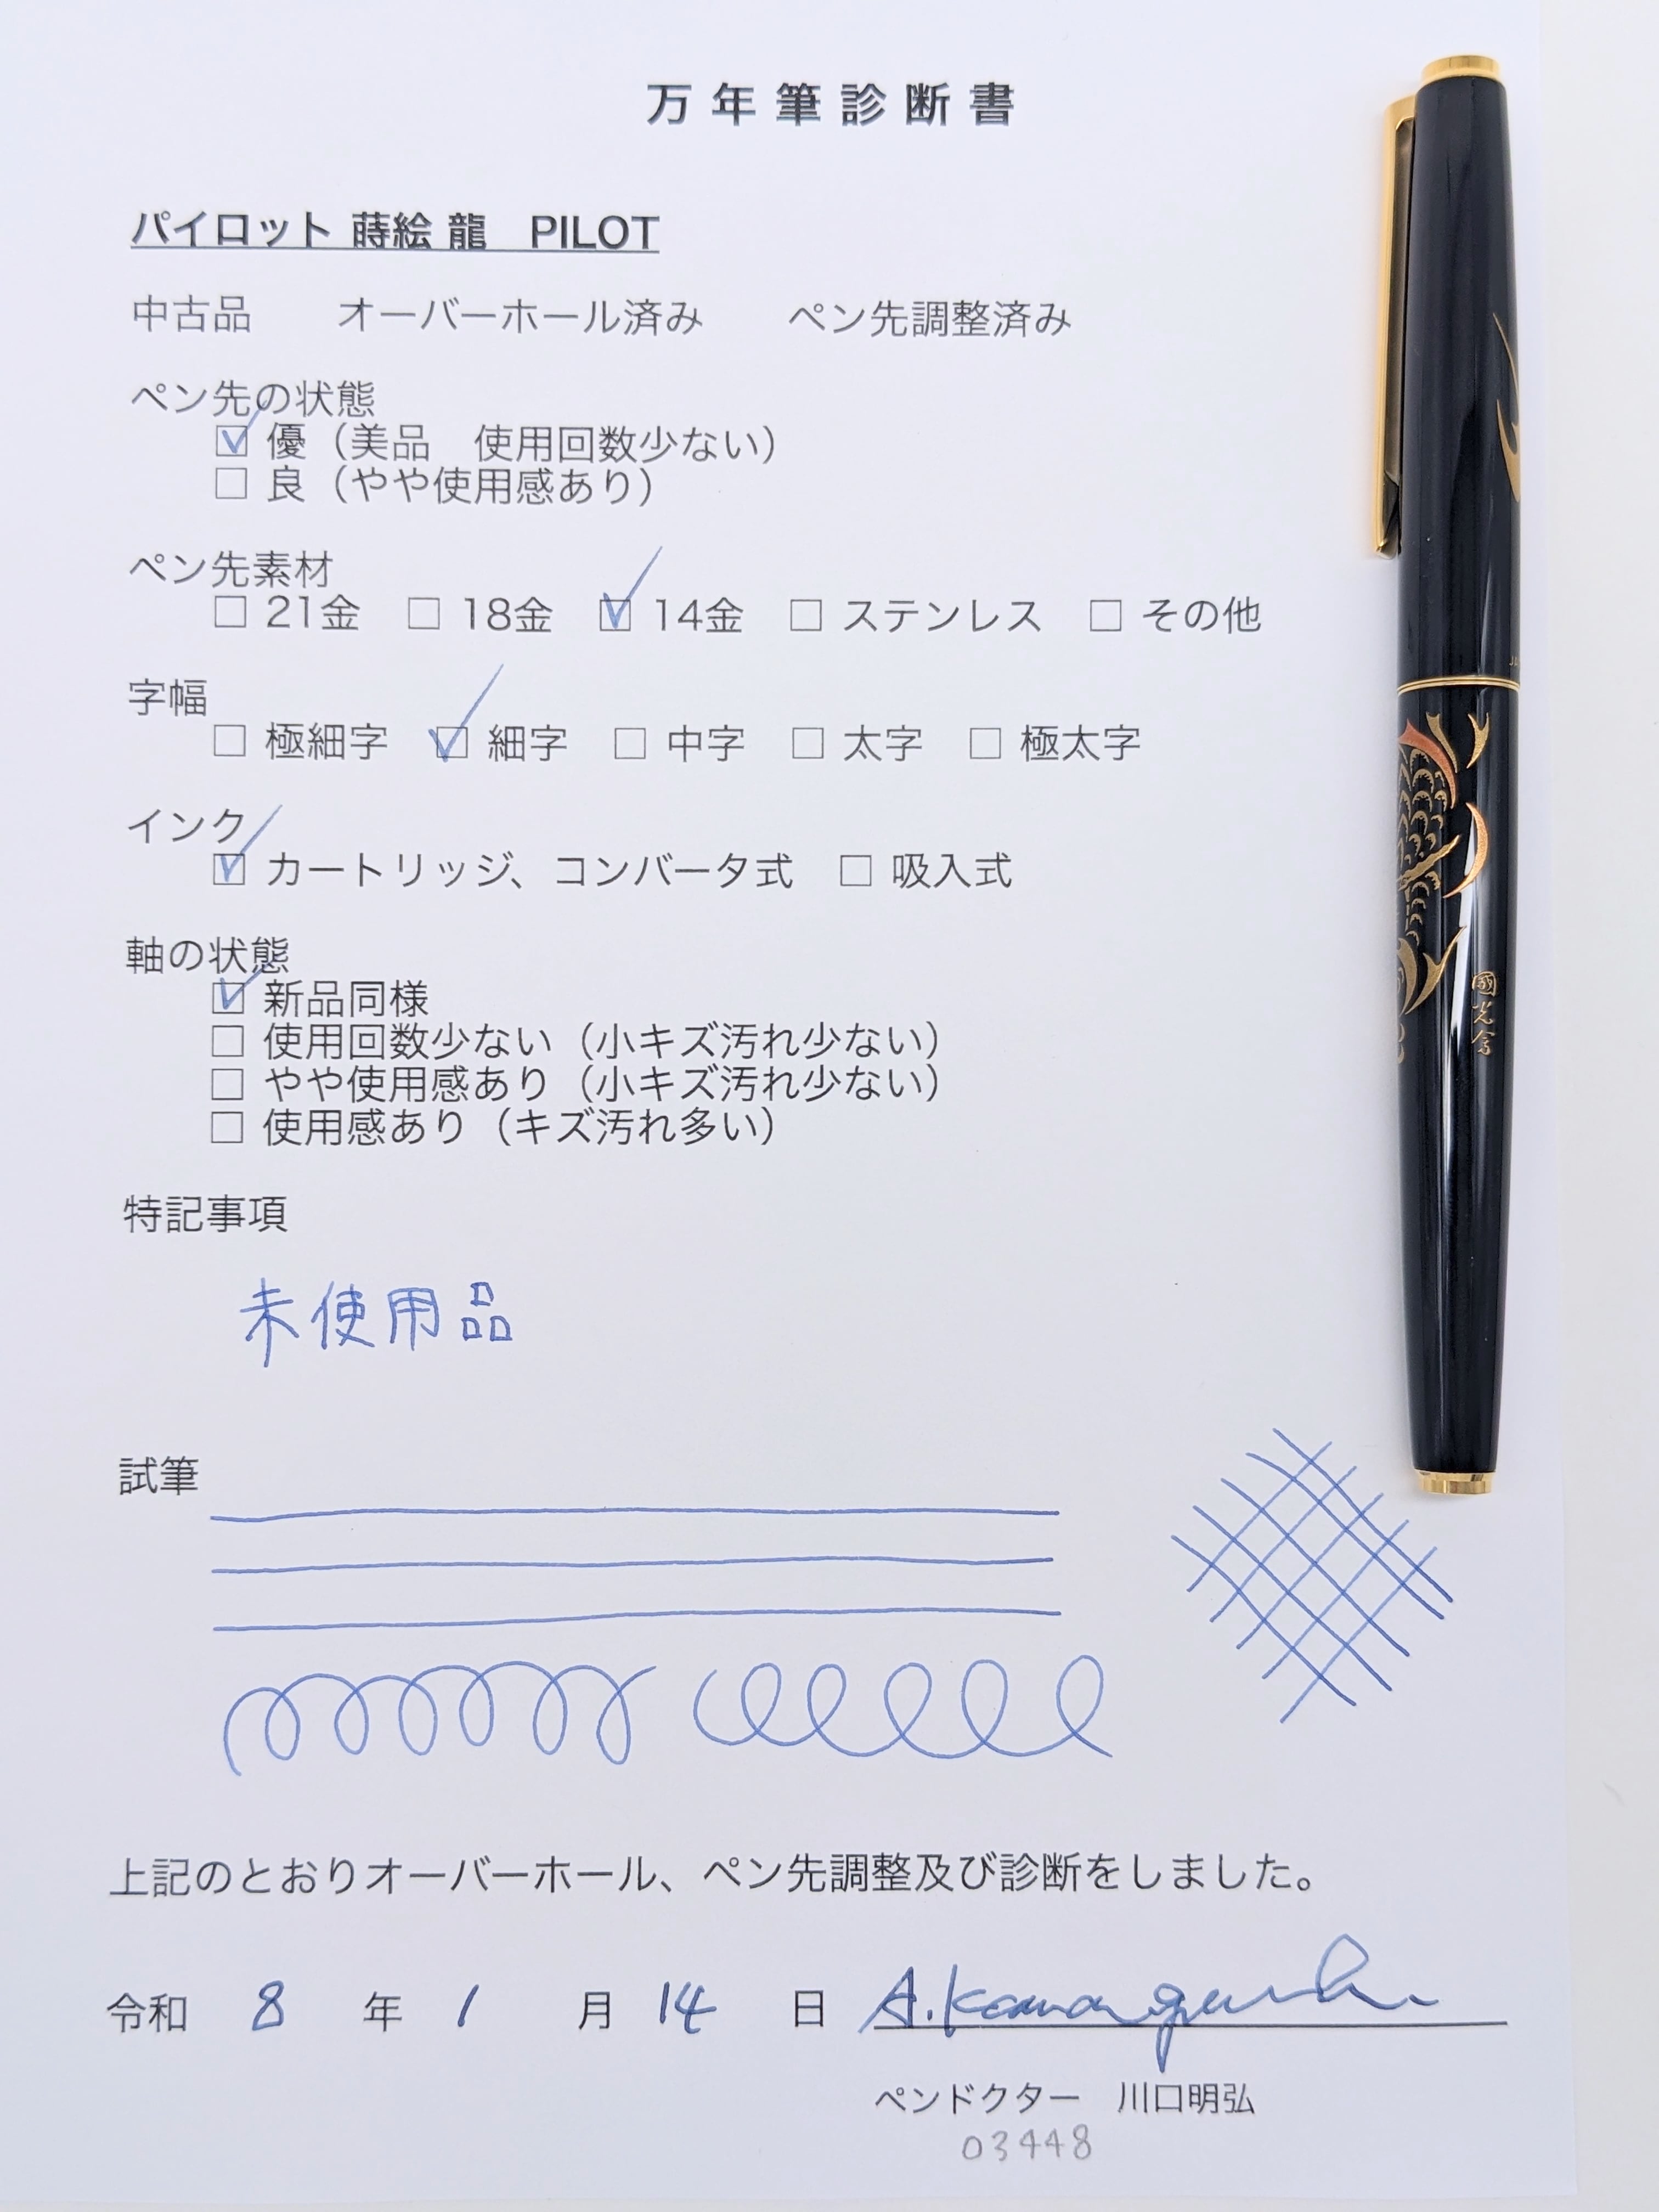 万年筆診断書
パイロット 蒔絵 龍　PILOT
中古品　　オーバーホール済み　　ペン先調整済み
ペン先の状態
☑ 優（美品　使用回数少ない）
□ 良（やや使用感あり）
ペン先素材
□ 21金　□ 18金　☑ 14金　□ ステンレス　□ その他
字幅
□ 極細字　☑ 細字　□ 中字　□ 太字　□ 極太字
インク
☑ カートリッジ、コンバータ式　□ 吸入式
軸の状態
☑ 新品同様
□ 使用回数少ない（小キズ汚れ少ない）
□ やや使用感あり（小キズ汚れ少ない）
□ 使用感あり（キズ汚れ多い）
特記事項
未使用品
試筆
上記のとおりオーバーホール、ペン先調整及び診断をしました。
令和 8 年 1 月 14 日 A.Kawaguchi
ペンドクター　川口明弘
03448
國光會